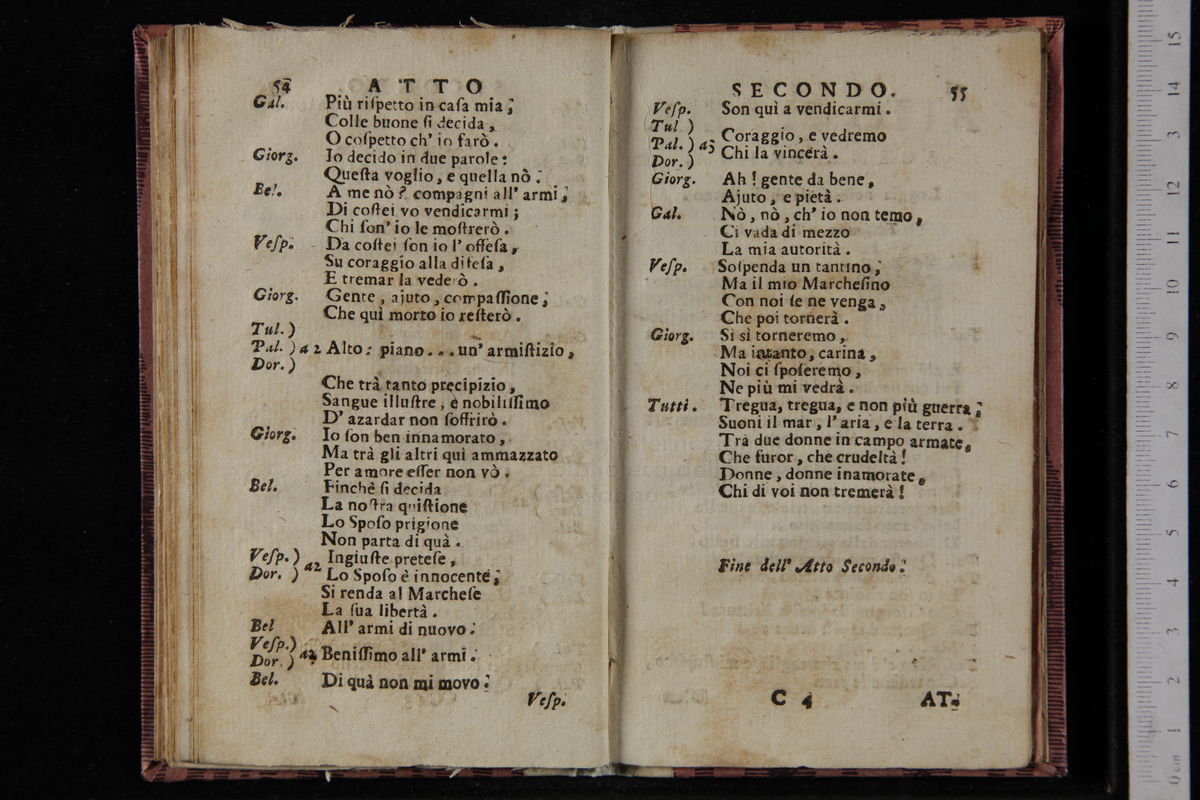 54 ATTO
Gal. Più riſpetto in caſa mia;
Colle buone ſi decida,
O coſpetto ch' io farò.
Giorg. Io decido in due parole:
Queſta voglio, e quella nò.
Bel. A me nò? compagni all' armi;
Di coſtei vo vendicarmi;
Chi ſon' io le moſtrerò.
Veſp. Da coſtei ſon io l' offeſa,
Su coraggio alla difeſa,
E tremar la vederò.
Giorg. Gente, ajuto, compaſſione;
Che quì morto io reſterò.
Tul. )
Pal. ) a 2 Alto: piano... un' armiſtizio,
Dor. )
Che trà tanto precipizio,
Sangue illuſtre, e nobiliſſimo
D' azardar non ſoffrirò.
Giorg. Io ſon ben innamorato,
Ma trà gli altri quì ammazzato
Per amore eſſer non vò.
Bel. Finchè ſi decida
La noſtra quiſtione
Lo Spoſo prigione
Non parta di quà.
Veſp. ) a2 Ingiuſte preteſe,
Dor. ) Lo Spoſo è innocente;
Si renda al Marcheſe
La ſua libertà.
Bel All' armi di nuovo.
Veſp.)
Dor. ) a2 Beniſſimo all' armi.
Bel. Di quà non mi movo.
Veſp.
SECONDO. 55
Veſp. Son quì a vendicarmi.
Tul )
Pal. ) a3 Coraggio, e vedremo
Dor. ) Chi la vincerà.
Giorg. Ah! gente da bene,
Ajuto, e pietà.
Gal. Nò, nò, ch' io non temo,
Ci vada di mezzo
La mia autorità.
Veſp. Soſpenda un tantino;
Ma il mio Marcheſino
Con noi ſe ne venga,
Che poi tornerà.
Giorg. Si sì torneremo,
Ma intanto, carina,
Noi ci ſpoſeremo,
Ne più mi vedrà.
Tutti. Tregua, tregua, e non più guerra;
Suoni il mar, l' aria, e la terra.
Trà due donne in campo armate,
Che furor, che crudeltà!
Donne, donne inamorate,
Chi di voi non tremerà!
Fine dell' Atto Secondo.
C 4 AT-
0 cm 1 2 3 4 5 6 7 8 9 10 11 12 13 14 15